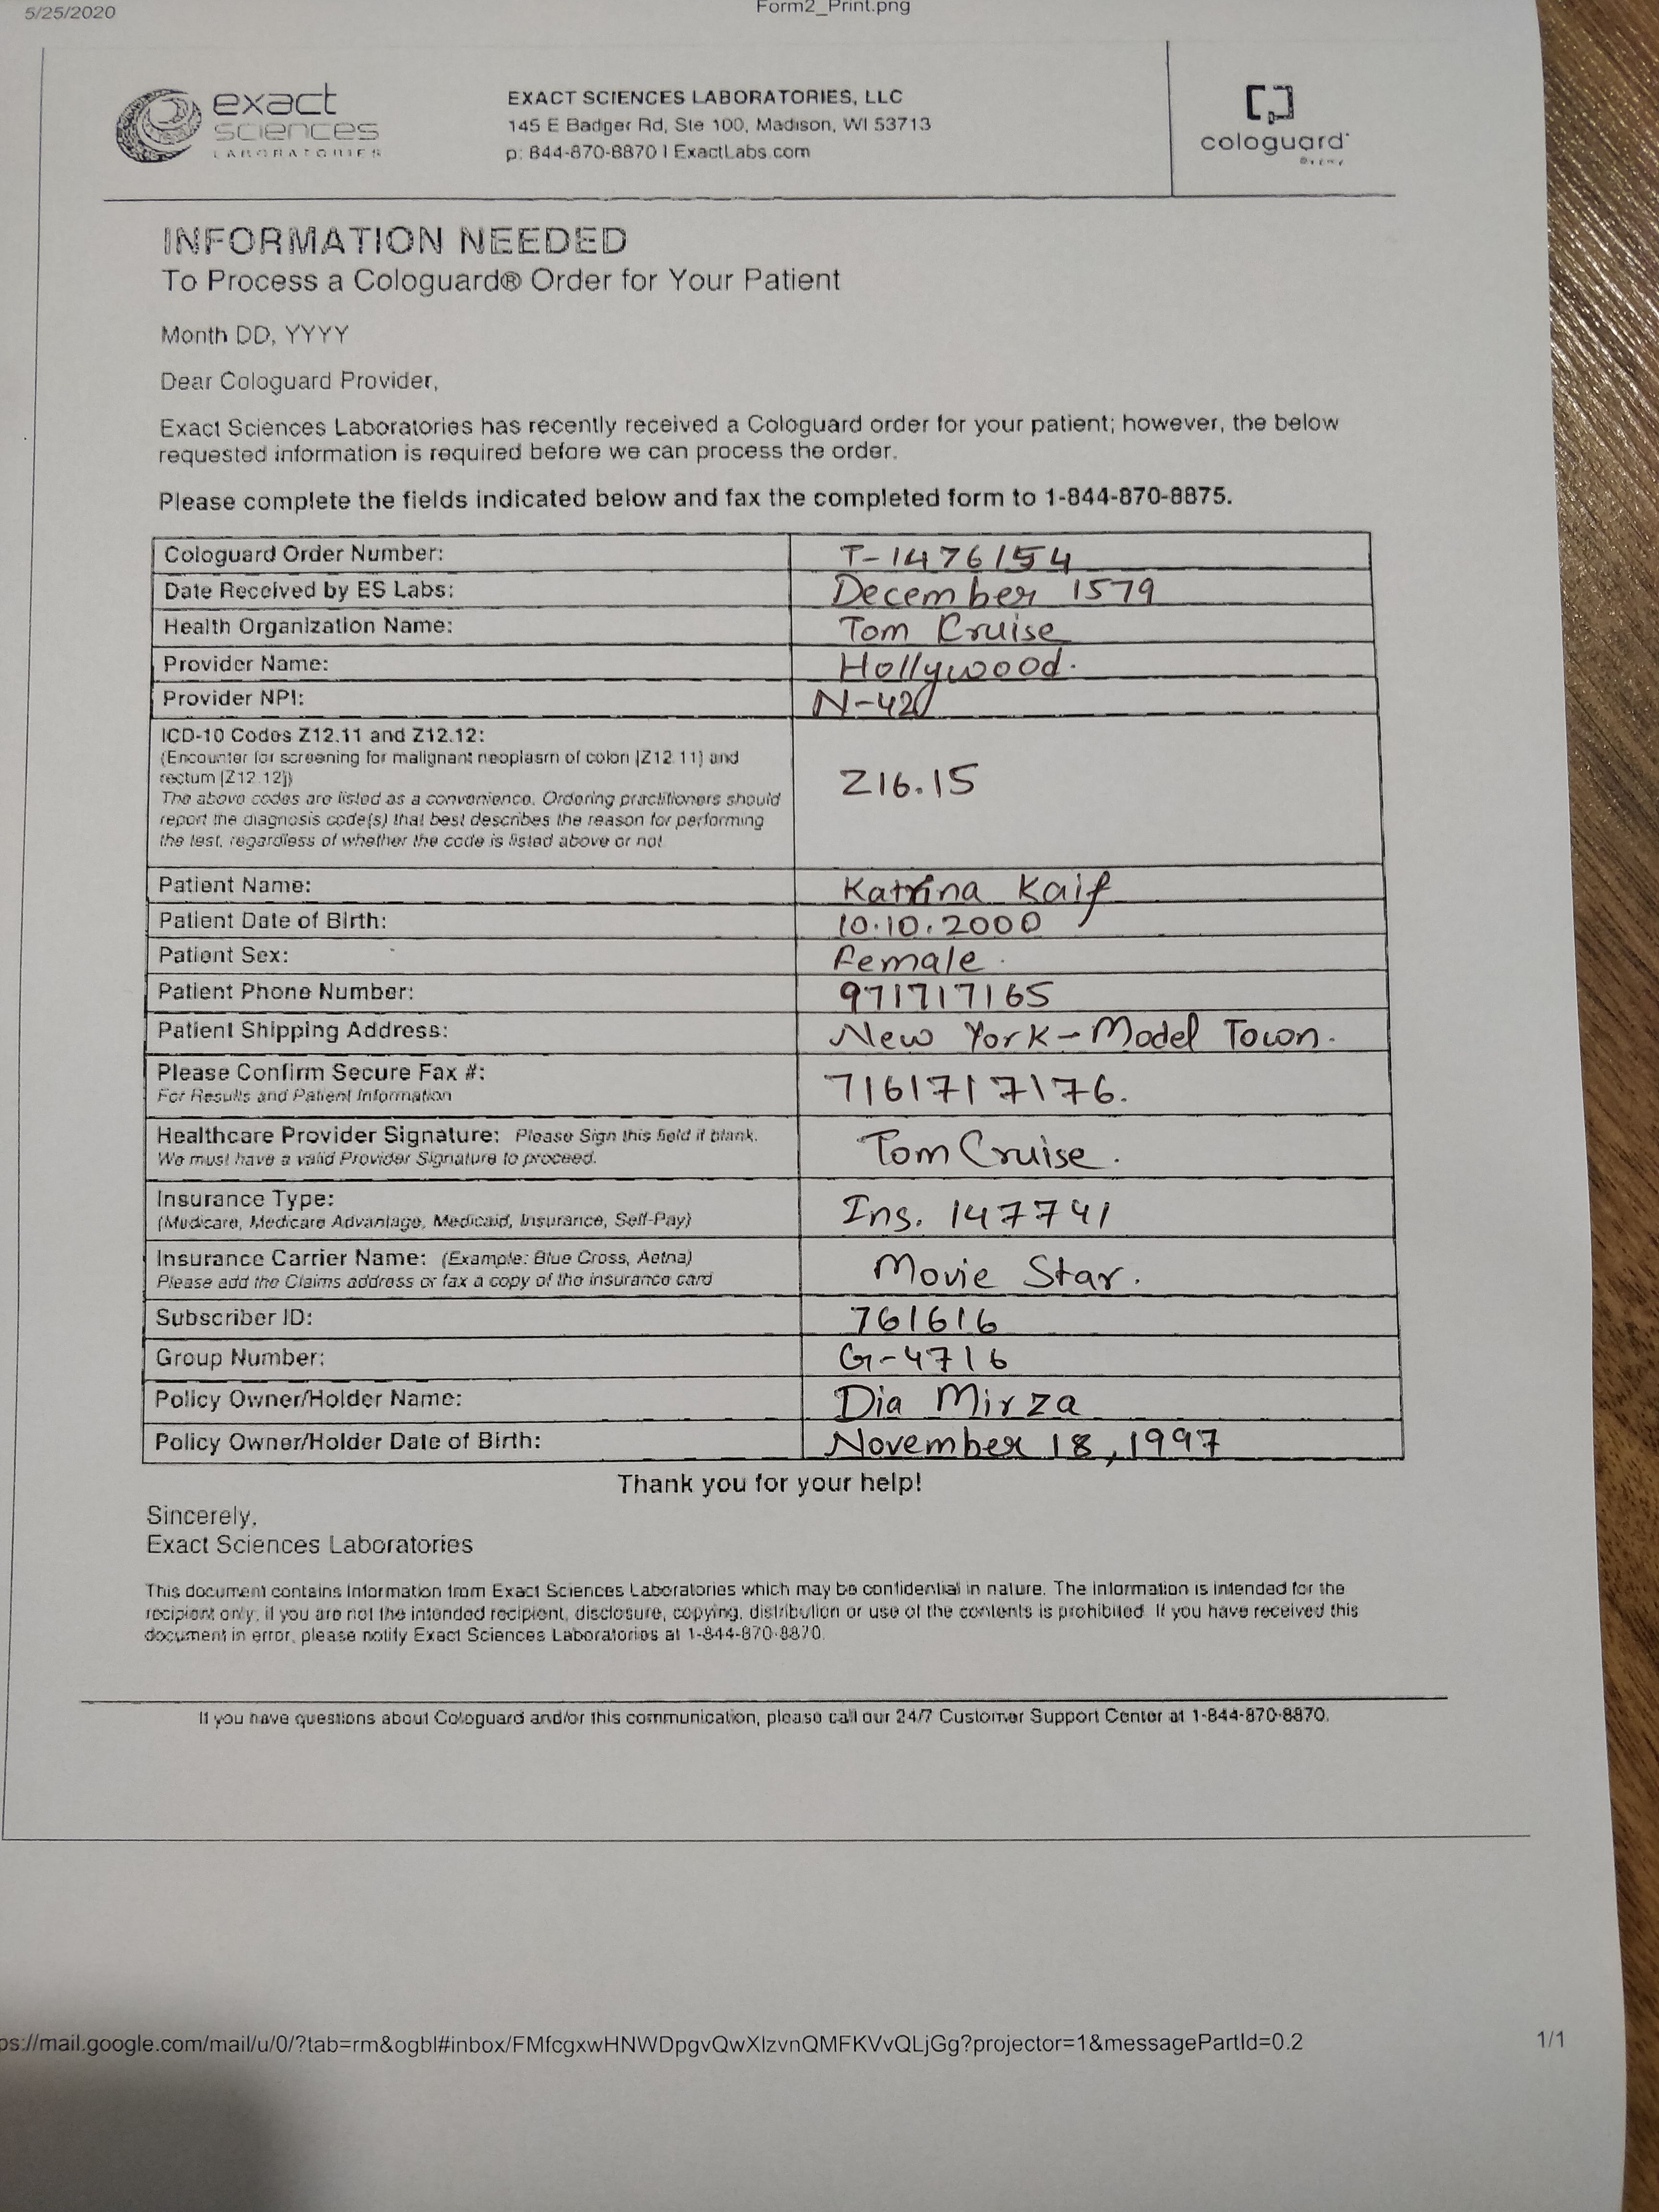 5/25/2020
Form2_Print.png
exact
sciences
LABORATORIES
EXACT SCIENCES LABORATORIES, LLC
145 E Badger Rd, Ste 100, Madison, WI 53713
p: 844-870-8870 | ExactLabs.com
cologuard
INFORMATION NEEDED
To Process a Cologuard® Order for Your Patient
Month DD, YYYY
Dear Cologuard Provider,
Exact Sciences Laboratories has recently received a Cologuard order for your patient; however, the below
requested information is required before we can process the order.
Please complete the fields indicated below and fax the completed form to 1-844-870-8875.
Cologuard Order Number: T-1476154
Date Received by ES Labs: December 1579
Health Organization Name: Tom Cruise
Provider Name: Hollywood.
Provider NPI: N-420
ICD-10 Codes Z12.11 and Z12.12:
(Encounter for screening for malignant neoplasm of colon [Z12.11] and
rectum [Z12.12])
The above codes are listed as a convenience. Ordering practitioners should
report the diagnosis code(s) that best describes the reason for performing
the test, regardless of whether the code is listed above or not
Z16.15
Patient Name: Katrina Kaif
Patient Date of Birth: 10.10.2000
Patient Sex: Female.
Patient Phone Number: 971717165
Patient Shipping Address: New York-Model Town.
Please Confirm Secure Fax #: 7161717176.
For Results and Patient Information
Healthcare Provider Signature: Please Sign this field if blank. Tom Cruise.
We must have a valid Provider Signature to proceed.
Insurance Type: Ins. 147741
(Medicare, Medicare Advantage, Medicaid, Insurance, Self-Pay)
Insurance Carrier Name: (Example: Blue Cross, Aetna) Movie Star.
Please add the Claims address or fax a copy of the insurance card
Subscriber ID: 761616
Group Number: G-4716
Policy Owner/Holder Name: Dia Mirza
Policy Owner/Holder Date of Birth: November 18, 1997
Thank you for your help!
Sincerely,
Exact Sciences Laboratories
This document contains information from Exact Sciences Laboratories which may be confidential in nature. The information is intended for the
recipient only; if you are not the intended recipient, disclosure, copying, distribution or use of the contents is prohibited. If you have received this
document in error, please notify Exact Sciences Laboratories at 1-844-870-8870.
If you have questions about Cologuard and/or this communication, please call our 24/7 Customer Support Center at 1-844-870-8870.
ps://mail.google.com/mail/u/0/?tab=rm&ogbl#inbox/FMfcgxwHNWDpgvQwXlzvnQMFKVvQLjGg?projector=1&messagePartId=0.2
1/1